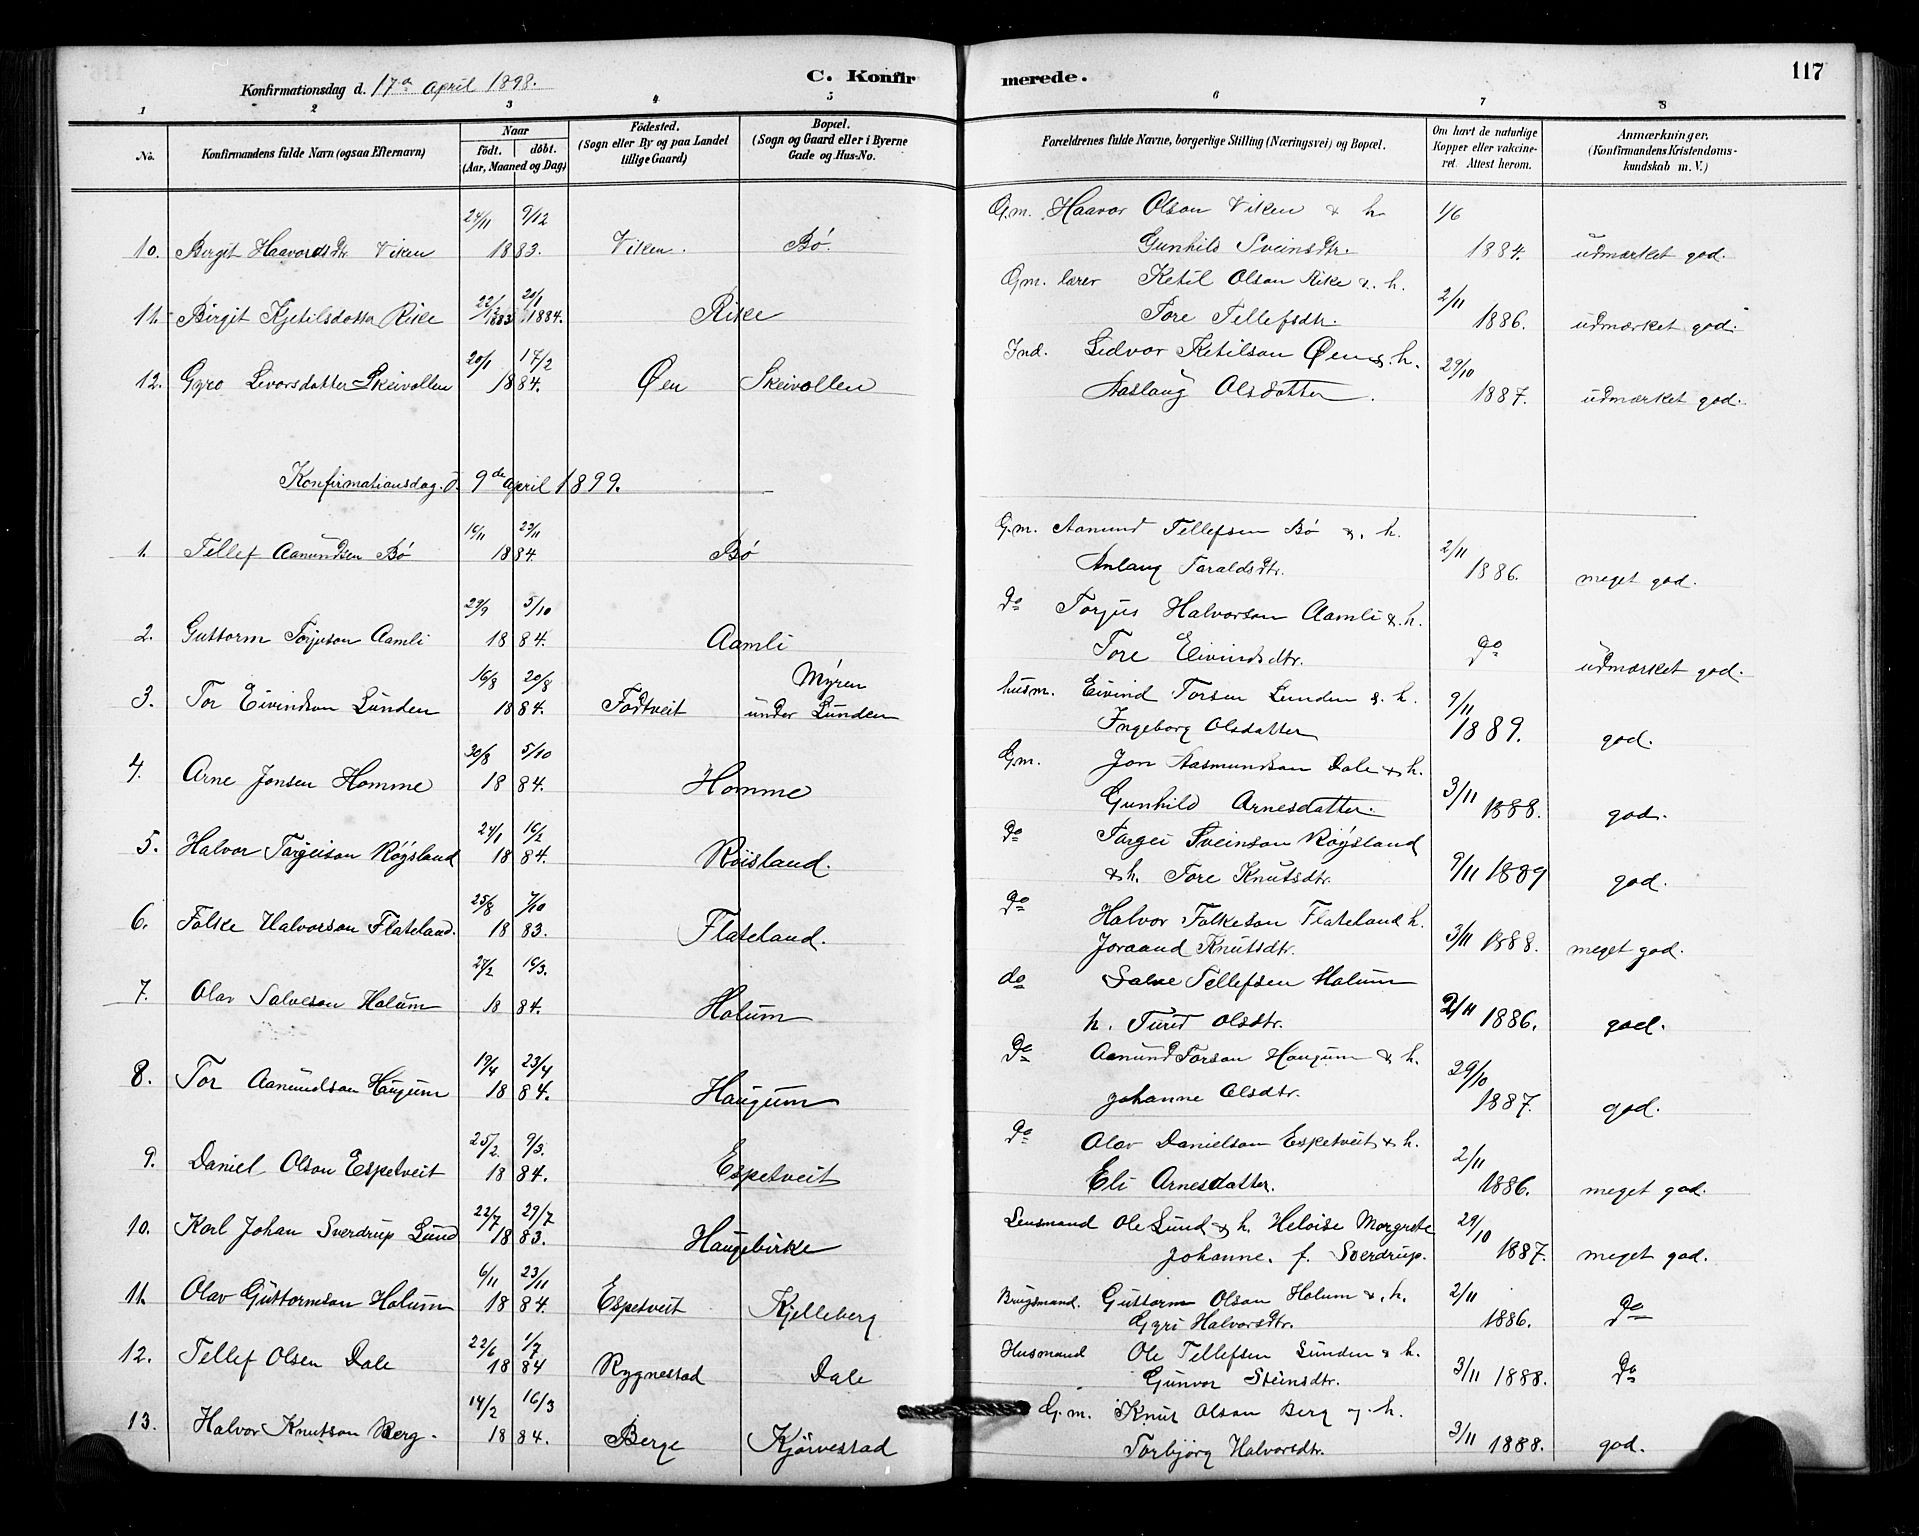 Konfirmationsdag d. 17de april 1898.
C. Konfirmerede.
117
1 2 3 4 5 6 7 8
No.
Konfirmandens fulde Navn (ogsaa Efternavn)
Naar
födt. döbt.
(Aar, Maaned og Dag)
Födested.
(Sogn eller By og paa Landet
tillige Gaard)
Bopæl.
(Sogn og Gaard eller i Byerne
Gade og Hus-No.
Forældrenes fulde Navne, borgerlige Stilling (Næringsvei) og Bopæl.
Om havt de naturlige
Kopper eller vakcine-
ret. Attest herom.
Anmærkninger.
(Konfirmandens Kristendoms-
kundskab m. V.)
24/11 9/12 G.m. Haavor Olson Viken & h. 1/6
10. Birgit Haavordsdtr. Viken 1883. Viken. Bö. Gunhild Sveinsdtr. 1884. udmærket god.
22/12 20/1 G.m. lærer Ketil Olson Rike & h. 2/11
11. Birgit Kjetilsdatter Rike 1883 1884. Rike Tore Tellefsdtr. 1886. udmærket god.
20/1 17/2 Ind. Lidvor Ketilson Øen & h. 29/10
12. Gyro Levorsdatter Skeivollen 1884. Øen Skeivollen Aaslaug Olsdatter. 1887. udmærket god.
Konfirmationsdag d. 9de april 1899.
16/11 23/11 G.m. Aanund Tellefsen Bö & h. 2/11
1. Tellef Aanundsen Bö 1884. Bö Anlaug Taraldsdtr. 1886. meget god.
29/9 5/10 do Torjus Halvorson Aamli & h.
2. Guttorm Torjuson Aamli 1884. Aamli Tore Eivindsdtr. do udmærket god.
16/8 20/8 Myren husm. Eivind Torsen Lunden & h. 9/11
3. Tor Eivindson Lunden 1884. Fodtveit under Lunden Ingeborg Olsdatter 1889. god.
30/8 5/10 G.m. Jon Aasmundson Dale & h.
4. Arne Jonsen Homme 1884. Homme Gunhild Arnesdatter. 3/11 1888. god.
24/1 16/2 do Targei Sveinson Röysland
5. Halvor Targeison Röysland 1884. Röisland. & h. Tore Knutsdtr. 9/11 1889 god.
25/8 7/10 do Halvor Folkeson Flateland h.
6. Folke Halvorson Flateland. 1883. Flateland. Joraand Knutsdtr. 3/11 1888. meget god.
27/2 16/3. do Salve Tellefsen Holum
7. Olav Salveson Holum 1884. Holum h. Turid Olsdtr. 2/11 1886. god.
19/4 23/4 do Aanund Torson Haugum & h. 29/10
8. Tor Aanundson Haugum 1884. Haugum Johanne Olsdtr. 1887. god.
25/2 9/3. do Olav Danielson Espetveit & h. 2/11
9. Daniel Olson Espetveit 1884. Espetveit Eli Arnesdatter. 1886. meget god.
22/7 29/7 Lensmand Ole Lund & h. Heloise Margrete 29/10
10. Karl Johan Sverdrup Lund 1883. Haugebirke Johanne. f. Sverdrup. 1887. meget god.
6/11 23/11 Brugsmand. Guttorm Olson Holum & h. 2/11
11. Olav Guttormson Holum 1884. Espetveit Kjelleberg Gyri Halvorsdtr. 1886. do
22/6 1/7 Husmand Ole Tellefsen Lunden & h.
12. Tellef Olsen Dale 1884 Rygnestad Dale Gunvor Steinsdtr. 3/11 1888. do
14/2 16/3 G.m. Knut Olson Berg og h.
13. Halvor Knutson Berg. 1884. Berge Kjörvestad Torbjörg Halvorsdtr. 3/11 1888. god.